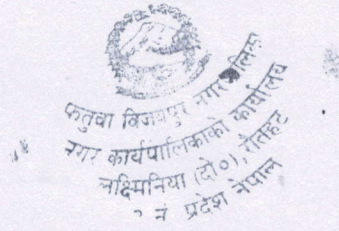 फतुवा विजयपुर नगरपालिका
नगर कार्यपालिकाको कार्यालय
लक्ष्मिनिया (दो०), रौतहट
२ नं प्रदेश नेपाल